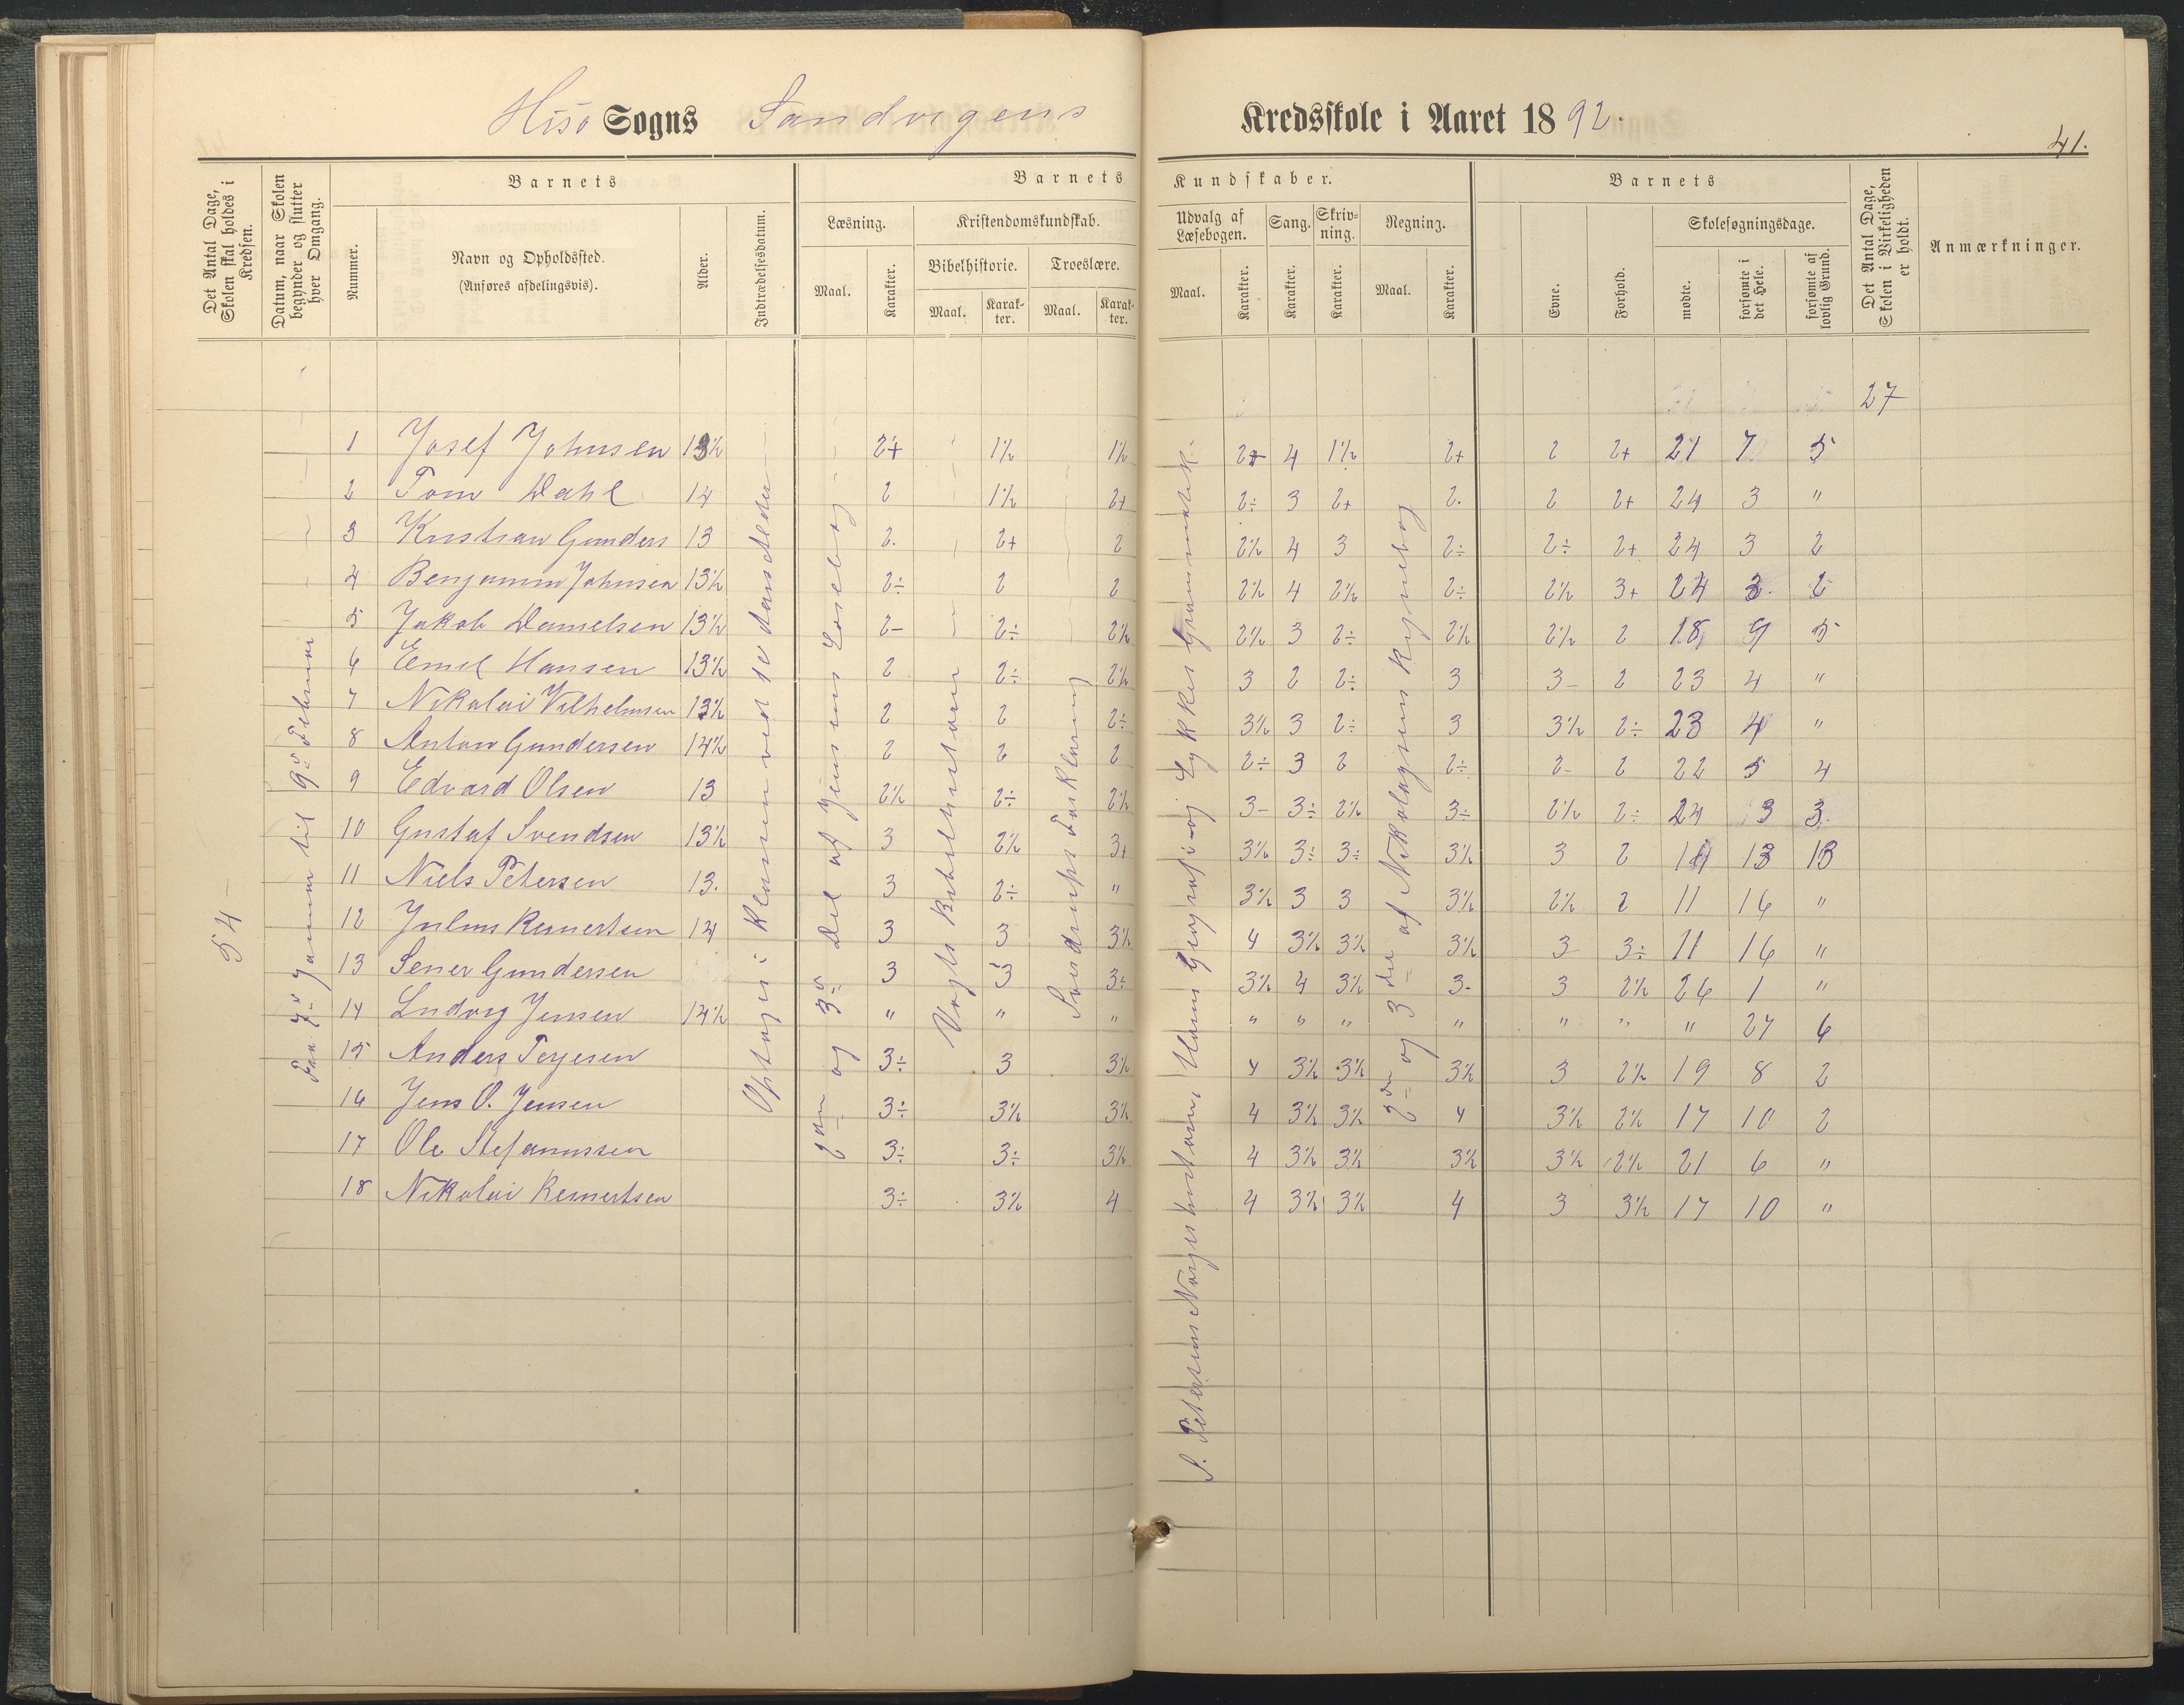 Hisø Sogns Sandvigens Kredsskole i Aaret 1892.
41.
Det Antal Dage, Skolen skal holdes i Kredsen.
Datum, naar Skolen begynder og slutter hver Omgang.
Barnets
Nummer.
Navn og Opholdssted.
(Anføres afdelingsvis).
Alder.
Indtrædelsesdatum.
Barnets Kundskaber.
Læsning.
Maal.
Karakter.
Kristendomskundskab.
Bibelhistorie.
Maal.
Karakter.
Troeslære.
Maal.
Karakter.
Udvalg af Læsebogen.
Maal.
Karakter.
Sang.
Karakter.
Skrivning.
Karakter.
Regning.
Maal.
Karakter.
Barnets
Evne.
Forhold.
Skolesøgningsdage.
mødte.
forsømte i det Hele.
forsømte af lovlig Grund.
Det Antal Dage, Skolen i Virkeligheden er holdt.
Anmærkninger.
27
54
Fra 7de Januar til 9de Februar
Optagen i Klassen ved 10 Aars Alder
2den og 3die Del af Jensens Læsebog
Vogts Bibelhistorie
Sverdrups Forklaring
S. Petersens Norgeshistorie, Geografi og Lykkes Grammatik.
2den og 3die af Nikolaysens Regnebog
1 Josef Johnsen 13½ 2+ 1½ 1½ 2+ 4 1½ 2+ 2 2+ 21 7 5
2 Tom Dahl 14 2 1½ 2+ 2÷ 3 2+ 2. 2 2+ 24 3 "
3 Kristian Gunders 13 2. 2+ 2 2½ 4 3 2÷ 2÷ 2+ 24 3 2
4 Benjamin Johnsen 13½ 2÷ 2 2 2½ 4 2½ 2÷ 2½ 3+ 24 3. 2
5 Jakob Danielsen 13½ 2- 2÷ 2½ 2½ 3 2÷ 2½ 2½ 2 18 9 5
6 Emil Hansen 13½ 2 2÷ 2½ 3 2 2÷ 3 3- 2 23 4 "
7 Nikolai Vilhelmsen 13½ 2 2 2÷ 3½ 3 2÷ 3 3½ 2÷ 23 4 "
8 Anton Gundersen 14½ 2 2 2 2÷ 3 2 2÷ 2- 2 22 5 4
9 Edvard Olsen 13 2½ 2÷ 2½ 3- 3÷ 2½ 3÷ 2½ 2÷ 24 3 3.
10 Gustaf Svendsen 13½ 3 2½ 3+ 3½ 3÷ 3÷ 3½ 3 2 14 13 13
11 Niels Petersen 13. 3 2÷ " 3½ 3 3 3½ 2½ 2 11 16 "
12 Julius Reinertsen 14 3 3 3½ 4 3½ 3½ 3½ 3- 3÷ 11 16 "
13 Sener Gundersen 3 3 3÷ 3½ 4 3½ 3- 3 2½ 26 1 "
14 Ludvig Jensen 14½ " " " " " " " " " " 27 6
15 Anders Terjesen 3÷ 3 3½ 4 3½ 3½ 3½ 3 2½ 19 8 2
16 Jens O. Jensen 3÷ 3½ 3½ 4 3½ 3½ 4 3½ 2½ 17 10 2
17 Ole Stefanussen 3÷ 3÷ 3½ 4 3½ 3½ 3½ 3½ 2½ 21 6 "
18 Nikolai Reinertsen 3÷ 3½ 4 4 3½ 3½ 4 3 3½ 17 10 "